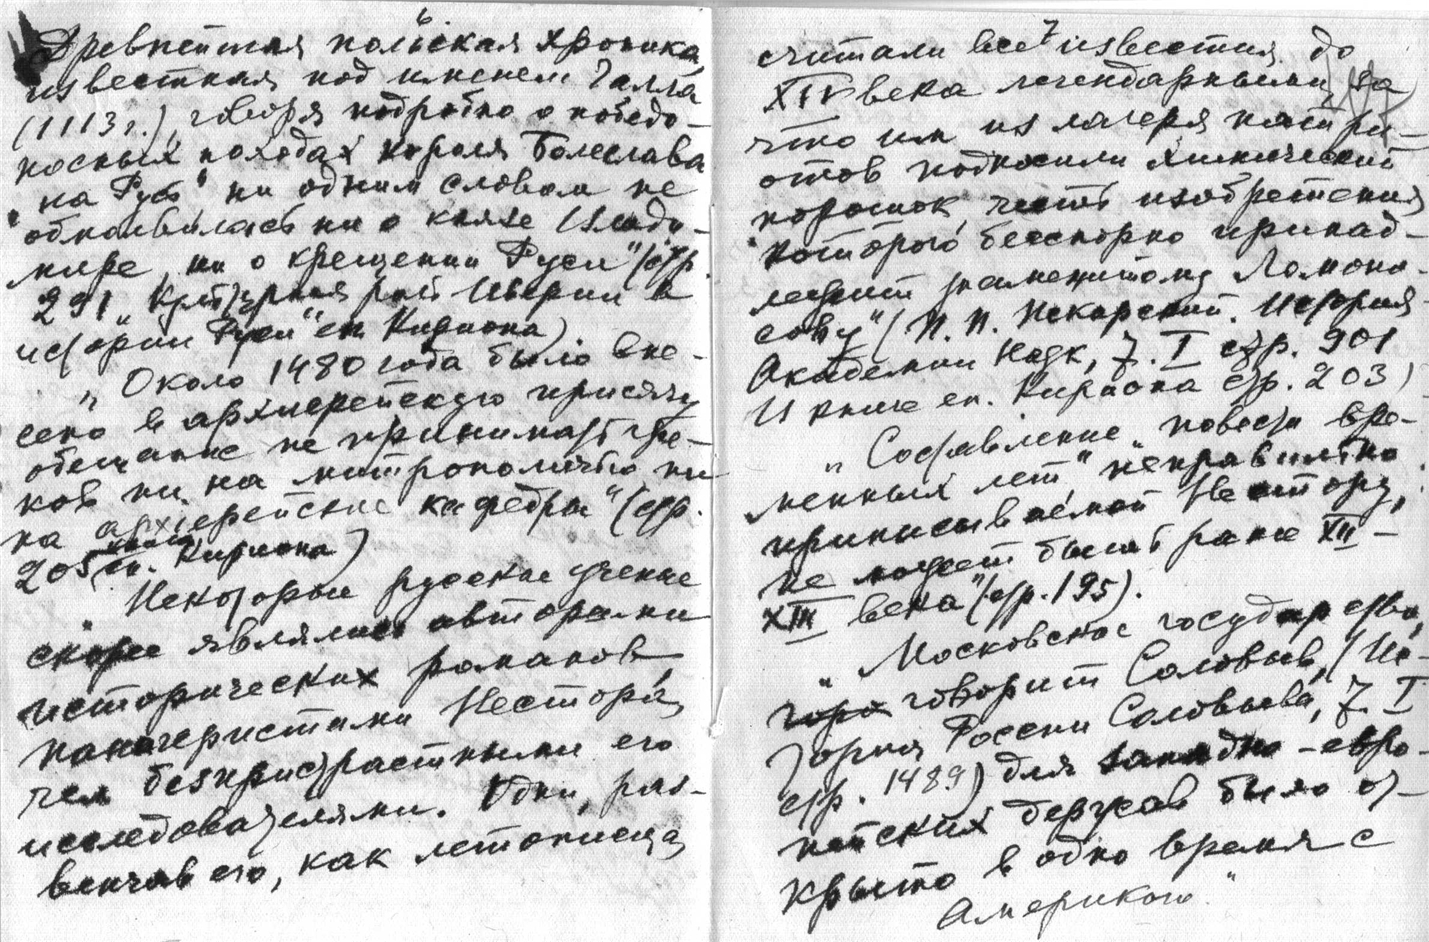 6
Древнейшая польская хроника,
известная под именем Галла
(1113 г.), говоря подробно о победо-
носных походах короля Болеслава
на Русь "ни одним словом не
обмолвилась ни о князе Влади-
мире, ни о крещении Руси" (стр.
291 "Культурная роль Иверии в
истории Руси" еп. Кириона)
"Около 1480 года было вне-
сено в архиерейскую присягу
обещание не принимать гре-
ков ни на митрополичью ни
на архиерейские кафедры" (стр.
205 книга еп. Кириона)
Некоторые русские ученые
скорее являлись авторами
исторических романов,
панегиристами Нестора,
чем безпристрастными его
исследователями. Одни, раз-
венчав его, как летописца,
7
считали все известия до
XIV века легендарными, за
что им из лагеря патри-
отов подносили химический
порошок, честь изобретения
"которого бесспорно принад-
лежит знаменитому Ломоно-
сову" (П. П. Пекарский. История
Академии Наук, Т. I стр. 901
И книге еп. Кириона стр. 203)
"Составление "повести вре-
менных лет" неправильно
приписываемой Нестору,
не может быть ранее XII-
XIII века" (стр. 195).
"Московское государство,
говорит Соловьев, (Ис-
тория России Соловьева, Т. I
стр. 1489) для западно-евро-
пейских держав было от-
крыто в одно время с
Америкою."